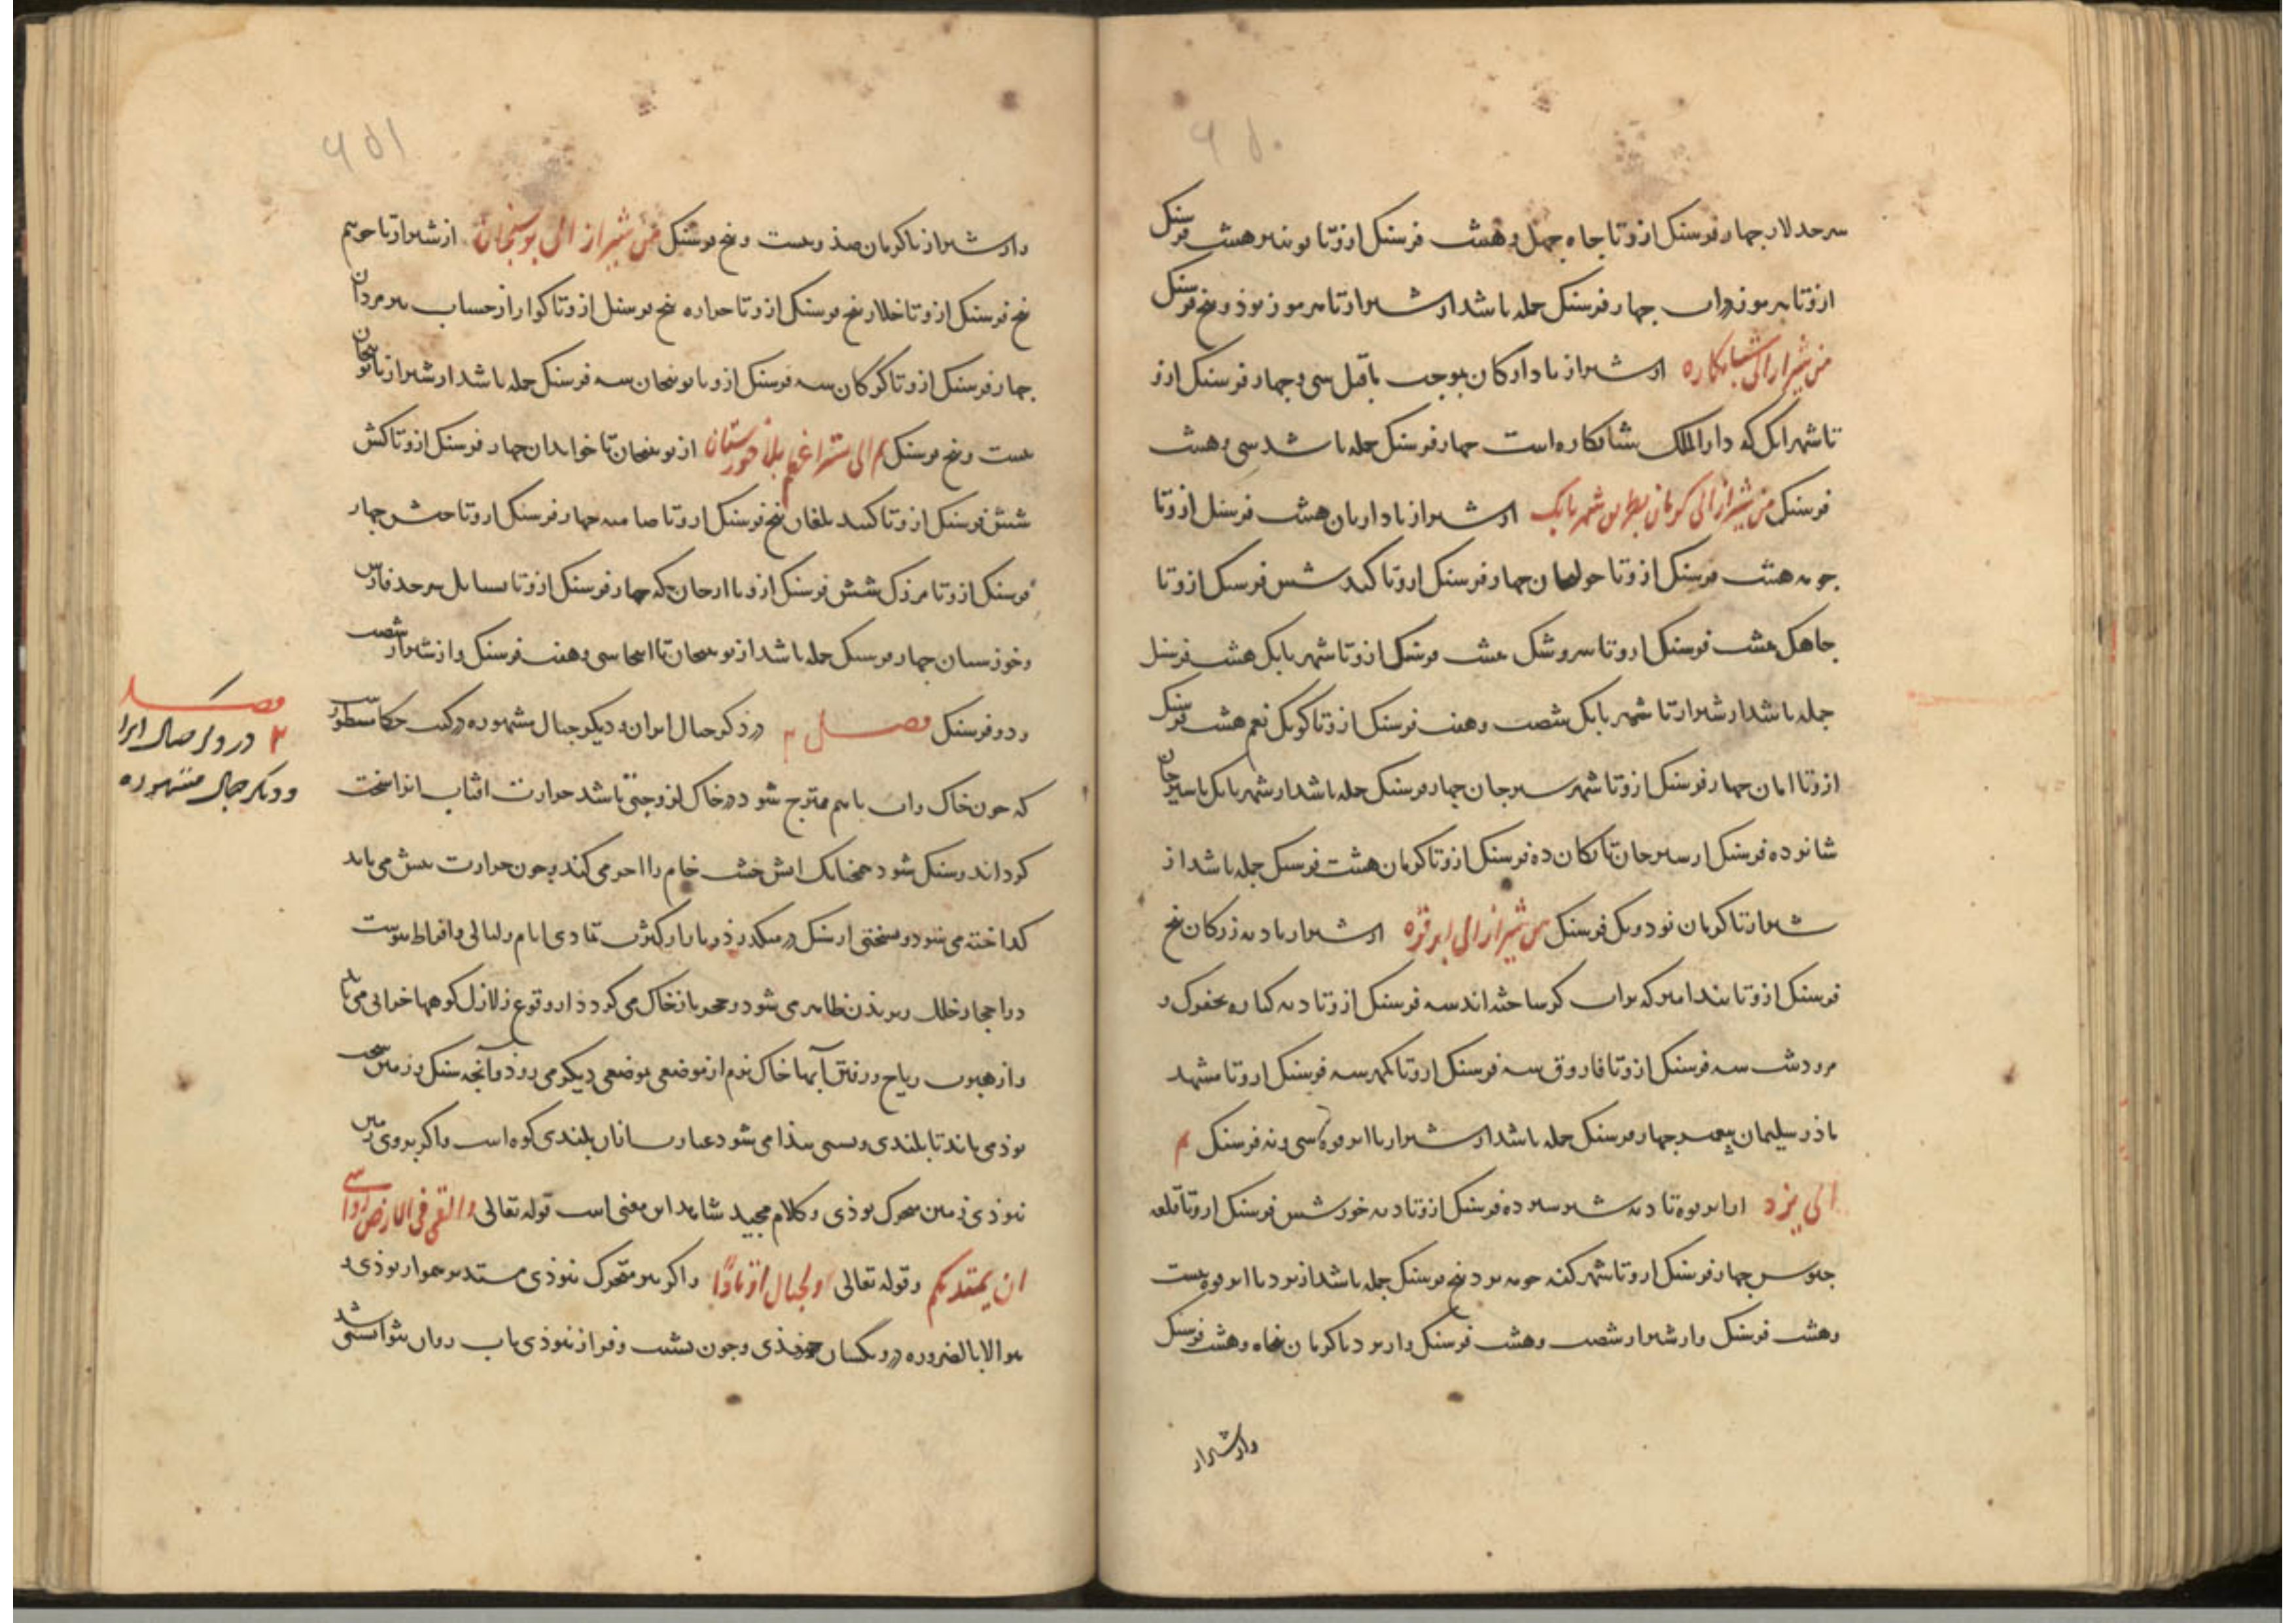 ۶۵۰
سرحد لار چهار فرسنك ازو تا چاه چهل و هشت فرسنك ازو تا هشت فرسنك
ازو تا هرموز چهار فرسنك جمله باشد از شیراز تا هرموز نوذ و پنج فرسنك
من شیراز الی شبانکاره از شیراز تا دارکان بموجب ماقبل سی و چهار فرسنك ازو
تا شهر ایك که دار الملك شبانکاره است چهار فرسنك جمله باشد سی و هشت
فرسنك من شیراز الی کرمان بطریق شهر بابك از شیراز تا داریان هشت فرسنك ازو تا
هشت فرسنك ازو تا چهار فرسنك ازو تا کبد شش فرسنك ازو تا
چاهك هشت فرسنك ازو تا سروشك هشت فرسنك ازو تا شهر بابك هشت فرسنك
جمله باشد از شیراز تا شهر بابك شصت و هفت فرسنك ازو تا کوبك نعم هشت فرسنك
ازو تا ابان چهار فرسنك ازو تا شهر سیرجان چهار فرسنك جمله باشد از شهر بابك تا سیرجان
شانزده فرسنك از سیرجان تا بکان ده فرسنك ازو تا کرمان هشت فرسنك جمله باشد از
شیراز تا کرمان نود و یك فرسنك من شیراز الی ابرقوه از شیراز تا دیه زرکان پنج
فرسنك ازو تا بند امیر که بر آب کر ساخته اند سه فرسنك ازو تا دیه کناره بحفرك و
مرودشت سه فرسنك ازو تا فاروق سه فرسنك ازو تا کمهر سه فرسنك ازو تا مشهد
ماذر سلیمان چهار فرسنك جمله باشد از شیراز تا ابرقوه سی و نه فرسنك م
الی یزد از ابرقوه تا دیه شیر سیزده فرسنك ازو تا دیه خور شش فرسنك ازو تا قلعه
مجوس چهار فرسنك ازو تا شهر یزد پنج فرسنك جمله باشد از یزد تا ابرقوه بیست
و هشت فرسنك و از شیراز شصت و هشت فرسنك و از یزد تا کرمان پنجاه و هشت فرسنك
و از شیراز
۶۵۱
و از شیراز تا کرمان صذ و بیست و پنج فرسنك من شیراز الی نوبنجان از شیراز تا جویم
پنج فرسنك ازو تا خلار پنج فرسنك ازو تا خراره پنج فرسنك ازو تا کوار از حساب تیر مردان
چهار فرسنك ازو تا کرکان سه فرسنك ازو تا نوبنجان سه فرسنك جمله باشد از شیراز تا نوبنجان
بیست و پنج فرسنك م الی تستر اعظم بلاد خورستان از نوبنجان تا خوابدان چهار فرسنك ازو تا کش
شش فرسنك ازو تا کنبد ملغان پنج فرسنك ازو تا چهار فرسنك ازو تا چهار
فرسنك ازو تا فرزك شش فرسنك ازو تا ارجان که چهار فرسنك ازو تا سرحد فارس
و خوزستان چهار فرسنك جمله باشد از نوبنجان تا اینجا سی و هفت فرسنك و از شیراز شصت
و دو فرسنك فصل ۲ در ذکر جبال ایران و دیکر جبال مشهوره در کتب حکما مسطورست
که چون خاك و آب باهم ممتزج شود و در خاك لزوجتی باشد حرارت افتاب انرا سخت
کرداند و سنك شود همچنانك اتش خشت خام را اجر می کند و چون حرارت بیش می یابد
کداخته می شود و بسختی از سنك در میکذرذ و باز از کثرت تمادی ایام و لیالی و افراط یبوست
در احجار خلل و بر بذن ظاهر می شود و حجر باز خاك می کردذ و از وقوع زلازل کوهها خرابی می یابد
و از هبوب ریاح و رفتن آبها خاك نرم از موضعی بموضعی دیکر می روذ و آنچه سنك و زمین سخت
بوذ می ماند تا بلندی و پستی پیذا می شود عبارت از آن بلندی کوه است و اکر بر روی زمین
نبوذی زمین متحرك بوذی و کلام مجید شاهد این معنی است قوله تعالی والقی فی الارض رواسی
ان یمتد بکم و قوله تعالی والجبال اوتادا و اکر نیز متحرك نبوذی مستدیر هموار بوذی و
هوا لا بالضروره درو یکسان جنبذی و چون نشیب و فراز نبوذی آب روان نتوانستی شد
فصل
۲ در ذکر جبال ایرا
و دیکر جبال مشهوره